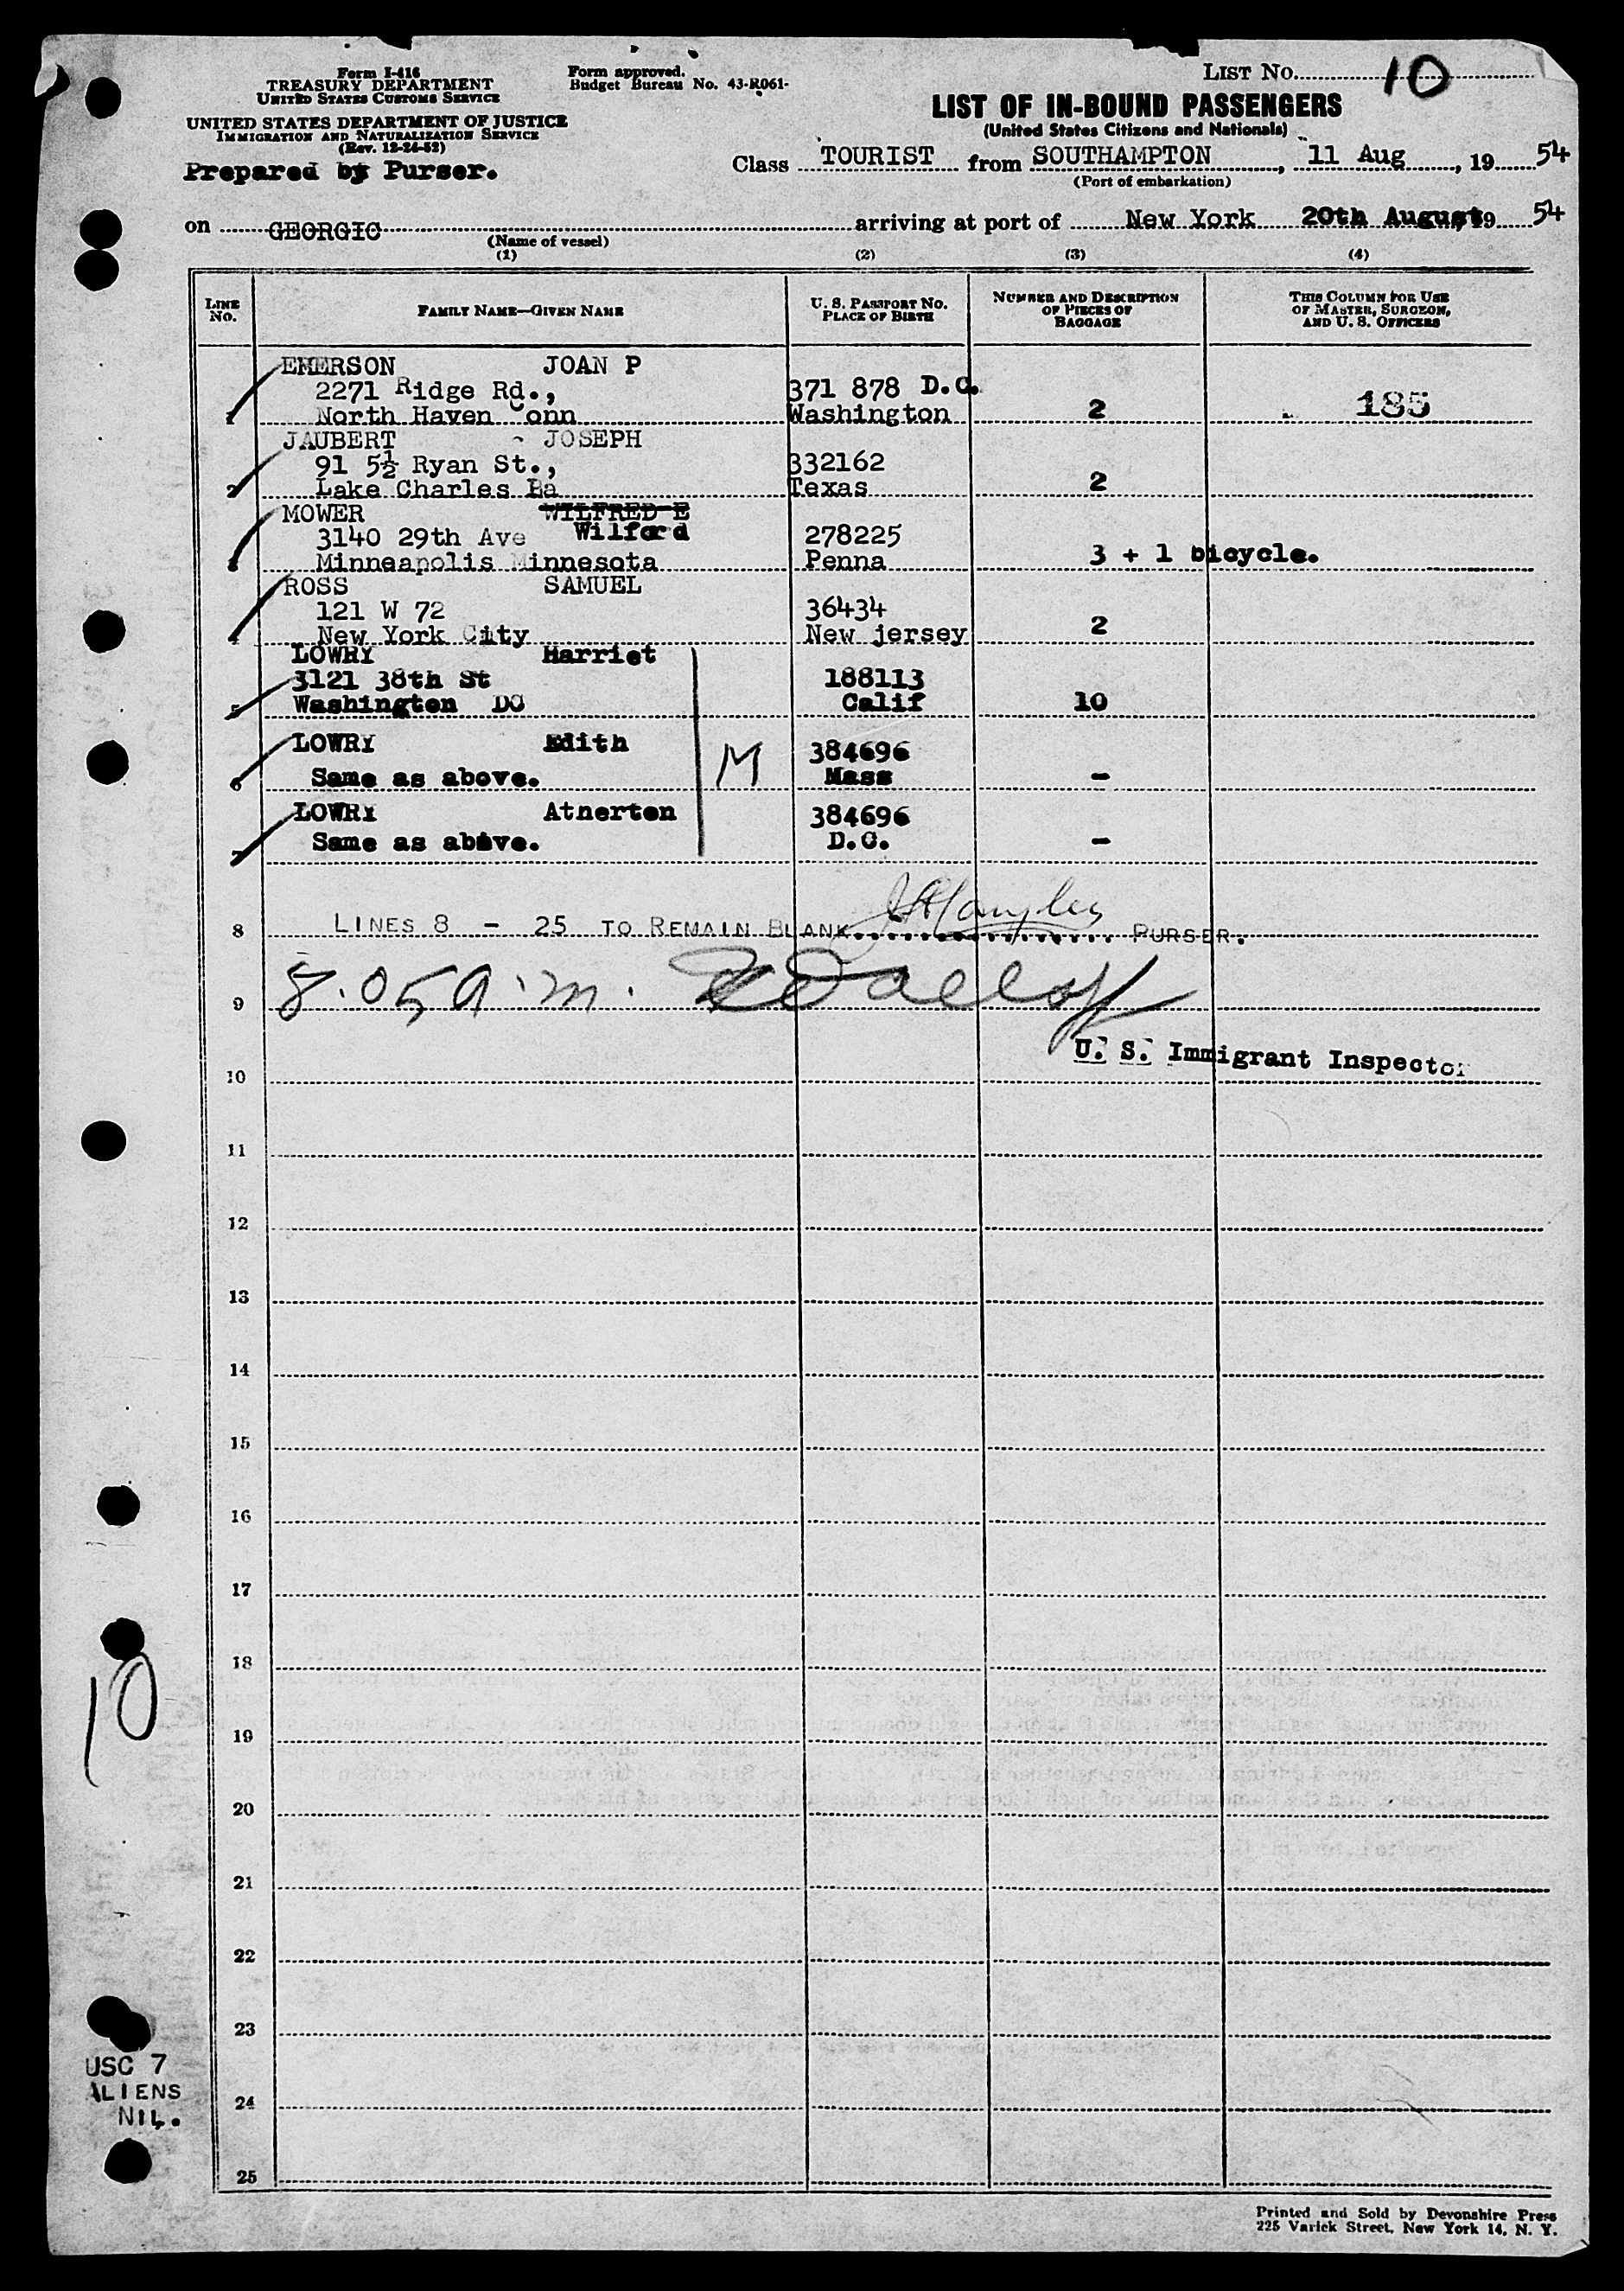 Form I-416
TREASURY DEPARTMENT
UNITED STATES CUSTOMS SERVICE
UNITED STATES DEPARTMENT OF JUSTICE
IMMIGRATION AND NATURALIZATION SERVICE
(Rev. 12-24-52)
Prepared by Purser.
Form approved.
Budget Bureau No. 43-R061-
LIST No. 10
LIST OF IN-BOUND PASSENGERS
(United States Citizens and Nationals)
Class TOURIST from SOUTHAMPTON, 11 Aug, 19 54
(Port of embarkation)
on GEORGIC arriving at port of New York 20th August, 19 54
(Name of vessel)
(1) (2) (3) (4)
LINE No. FAMILY NAME—GIVEN NAME U. S. PASSPORT No. PLACE OF BIRTH NUMBER AND DESCRIPTION OF PIECES OF BAGGAGE THIS COLUMN FOR USE OF MASTER, SURGEON, AND U. S. OFFICERS
EMERSON JOAN P
2271 Ridge Rd., 371 878 D.C.
1 North Haven Conn Washington 2 185
JAUBERT JOSEPH
91 5½ Ryan St., 332162
2 Lake Charles La Texas 2
MOWER WILFRED E
3140 29th Ave Wilford 278225
3 Minneapolis Minnesota Penna 3 + 1 bicycle.
ROSS SAMUEL
121 W 72 36434
4 New York City New jersey 2
LOWRY Harriet
3121 38th St 188113
5 Washington DC Calif 10
LOWRY Edith 384696
6 Same as above. M Mass -
LOWRY Atnerton 384696
7 Same as abive. D.C. -
8 LINES 8 - 25 TO REMAIN BLANK PURSER.
9 8.05 a.m.
U. S. Immigrant Inspector
10
11
12
13
14
15
16
17
18
19
20
21
22
23
24
25
10
USC 7
ALIENS
NIL.
Printed and Sold by Devonshire Press
225 Varick Street, New York 14, N. Y.